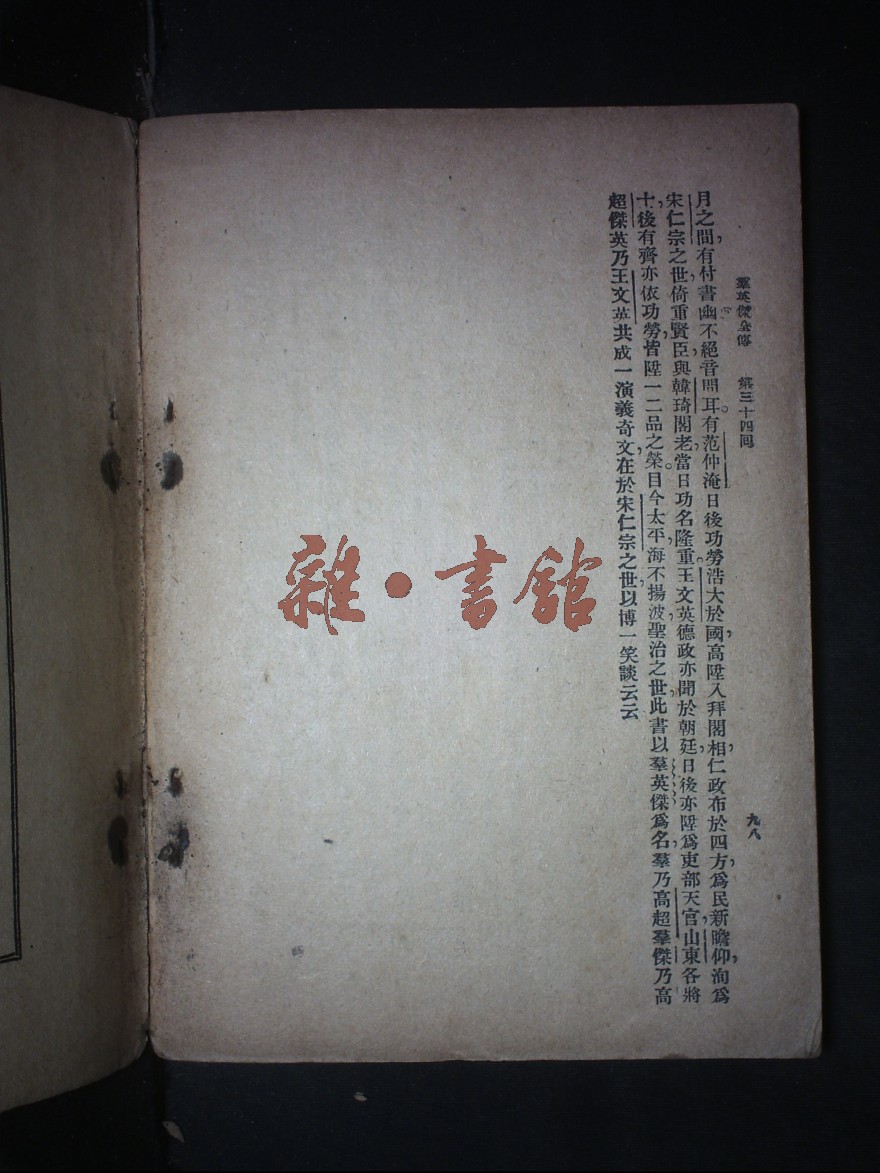 羣英傑全傳 第三十四回 九八
月之間，有付書幽不絕音問耳。有范仲淹日後功勞浩大於國，高陞入拜閣相，仁政布於四方，爲民新瞻仰，洵爲
宋仁宗之世，倚重賢臣，與韓琦閣老，當日功名隆重。王文英德政亦聞於朝廷，日後亦陞爲吏部天官，山東各將
士，後有齊亦依功勞，皆陞一二品之榮。目今太平，海不揚波，聖治之世，此書以羣英傑爲名，羣乃高超羣，傑乃高
超傑，英乃王文英，共成一演義奇文，在於宋仁宗之世，以博一笑談云云
雜·書館